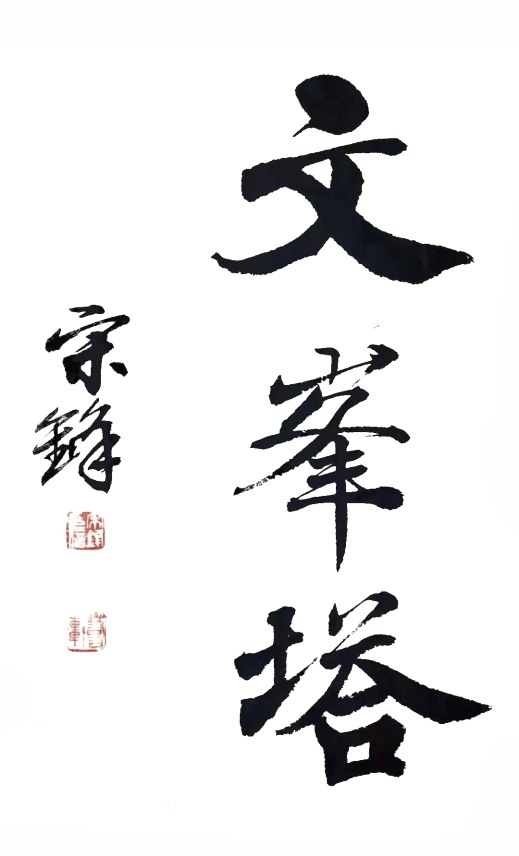 文峯塔
宋鋒